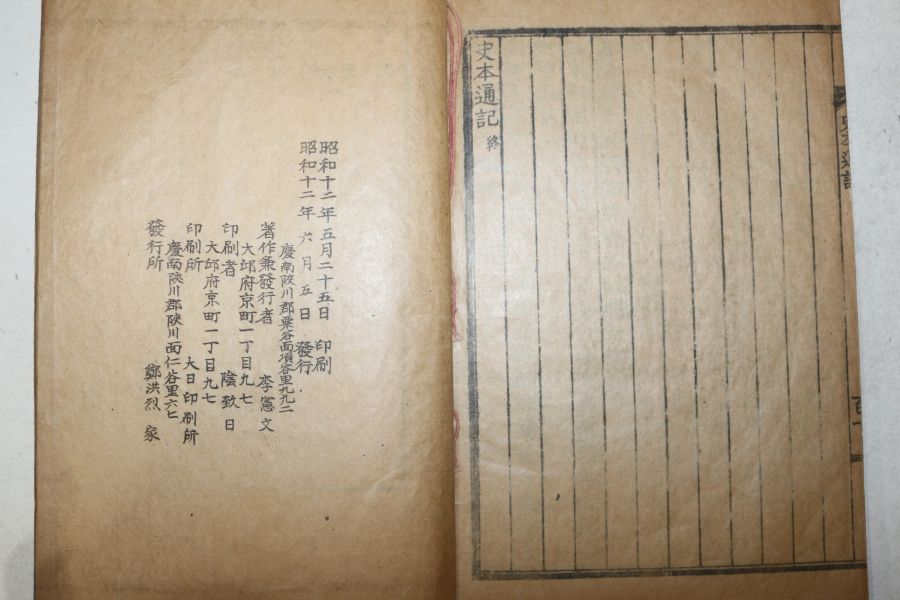 史本通記 終
史本通記
百一
昭和十二年五月二十五日 印刷
昭和十二年六月五日 發行
慶南陜川郡栗谷面項谷里九九二
著作兼發行者 李憲文
大邱府京町一丁目九七
印刷者 陰致日
大邱府京町一丁目九七
印刷所 大日印刷所
慶南陜川郡陜川面仁谷里六七
發行所 鄭洪烈家